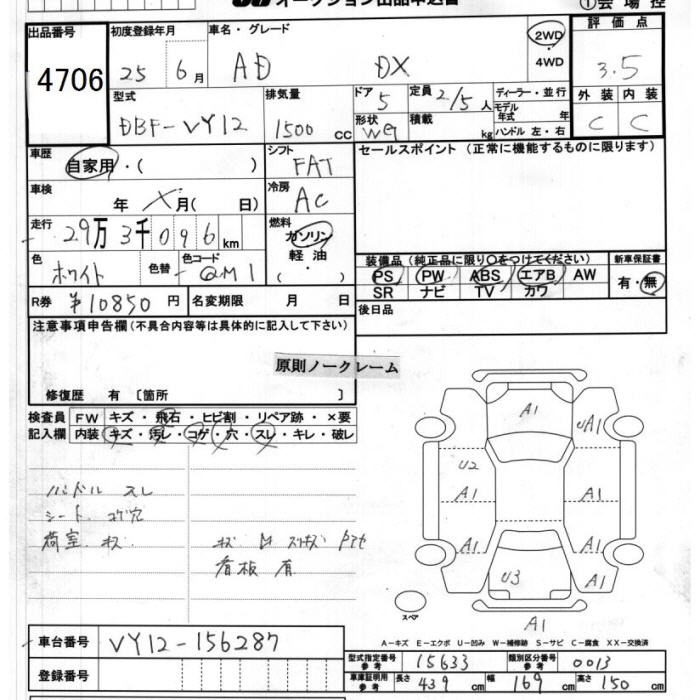 オークション出品申込書
①会場控
出品番号 4706
初度登録年月 25 6月
車名・グレード AD DX
2WD・4WD
評価点 3.5
型式 DBF-VY12
排気量 1500 cc
ドア 5
形状
定員 2/5人
積載 kg
ディーラー・並行
モデル年式 年
ハンドル 左・右
外装 C
内装 C
車歴 自家用・( )
シフト FAT
セールスポイント(正常に機能するものに限ります)
車検 年 月( 日)
冷房 AC
走行 29万3千096km
燃料 ガソリン
軽油
・( )
色 ホワイト
色替
色コード QM1
装備品(純正品に限り○をつけてください)
PS PW ABS エアB AW
SR ナビ TV カワ
新車保証書 有・無
R券 ¥10850円
名変期限 月 日
後日品
注意事項申告欄(不具合内容等は具体的に記入して下さい)
原則ノークレーム
修復歴 有 〔箇所 〕
検査員記入欄
FW キズ・飛石・ヒビ割・リペア跡・×要
内装 キズ・汚レ・コゲ・穴・スレ・キレ・破レ
ハンドル スレ
シート コゲ穴
荷室 キズ
看板 有
A1
UA1
U2
A1
A1
A1
A1
U3
A1
A1
スペア
A-キズ E-エクボ U-凹み W-補修跡 S-サビ C-腐食 XX-交換済
車台番号 VY12-156287
登録番号
型式指定番号 参考 15633
類別区分番号 参考 0013
車庫証明用 参考 長さ 439cm 幅 169cm 高さ 150cm